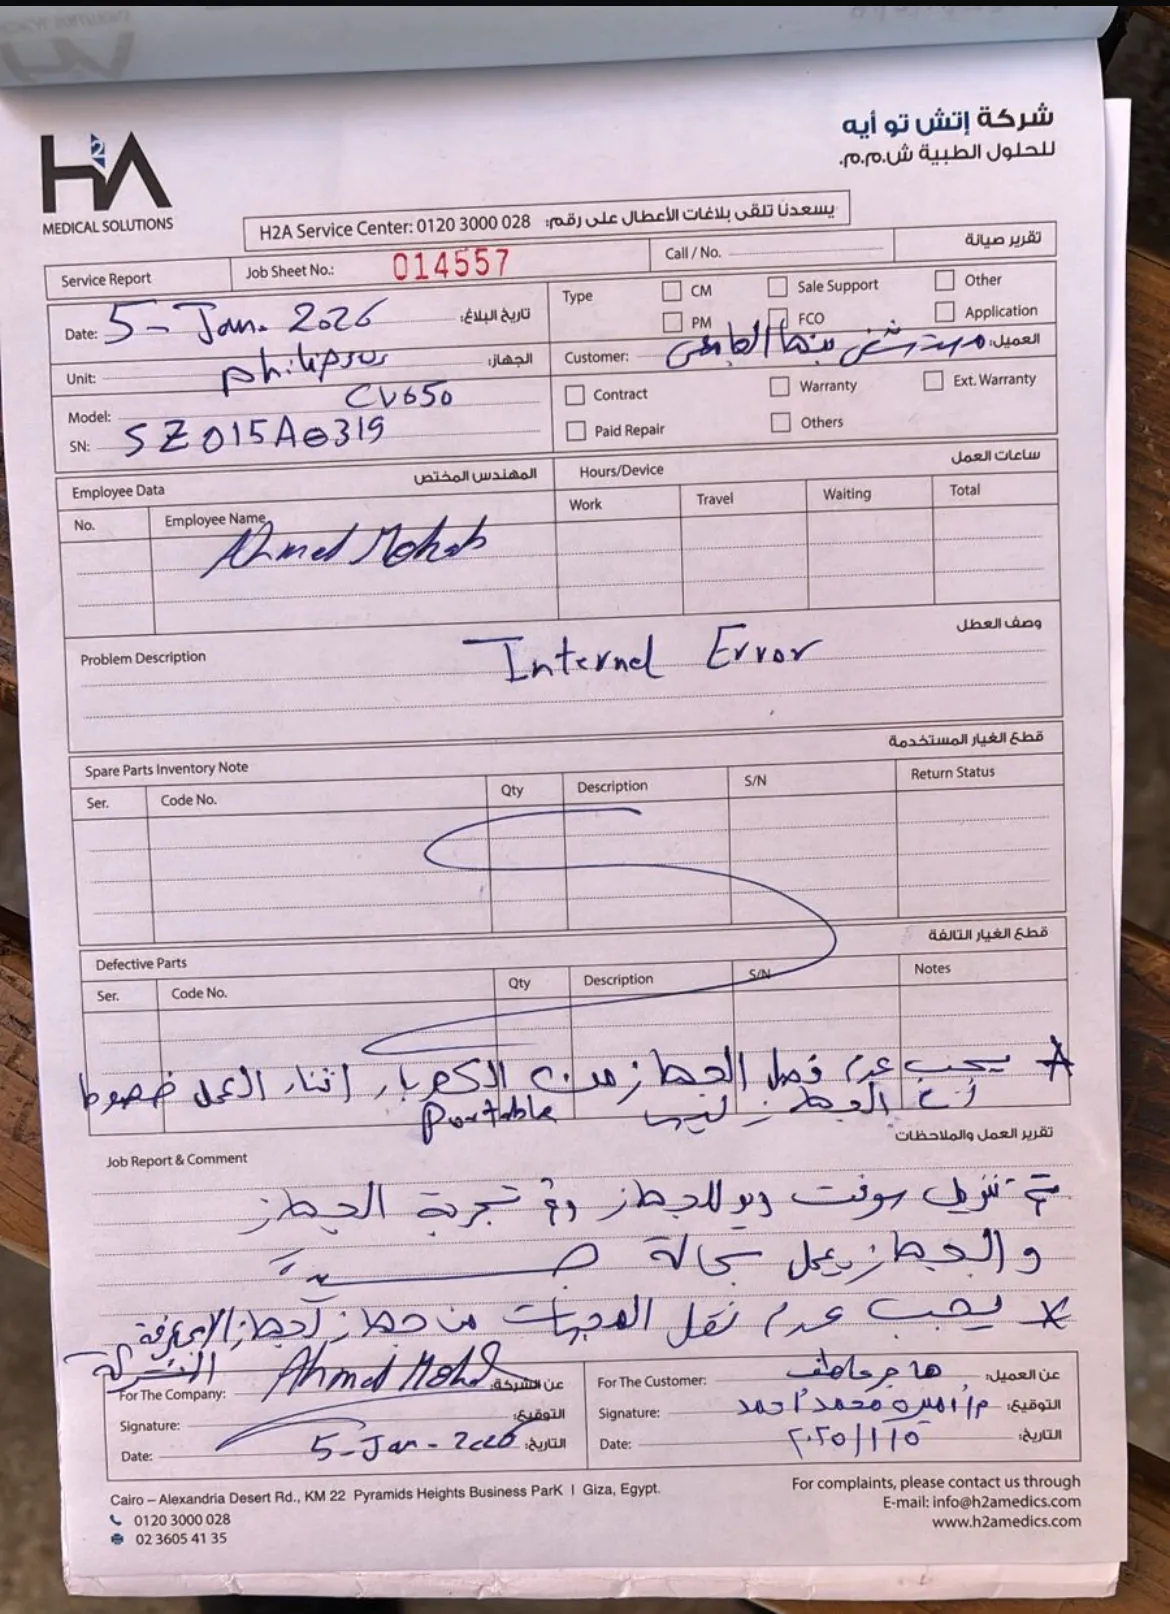 شركة إتش تو أيه
للحلول الطبية ش.م.م.
H2A
MEDICAL SOLUTIONS
H2A Service Center: 0120 3000 028 يسعدنا تلقى بلاغات الأعطال على رقم:
Service Report Job Sheet No.: 014557 Call / No. تقرير صيانة
Date: 5 - Jan. 2026 تاريخ البلاغ:
Type CM Sale Support Other
PM FCO Application
Unit: philips الجهاز:
Customer: بنها الجامعى العميل:
Model: CV650
SN: SZ015A0319
Contract Warranty Ext. Warranty
Paid Repair Others
Employee Data المهندس المختص
Hours/Device ساعات العمل
No. Employee Name Work Travel Waiting Total
Ahmed Mohab
Problem Description وصف العطل
Internel Error
Spare Parts Inventory Note قطع الغيار المستخدمة
Ser. Code No. Qty Description S/N Return Status
Defective Parts قطع الغيار التالفة
Ser. Code No. Qty Description S/N Notes
* يجب عدم فصل الجهاز من الكهرباء اثناء العمل خصوصا
ان الجهاز ليس portable
Job Report & Comment تقرير العمل والملاحظات
تم تنزيل سوفت وير للجهاز وتم تجربة الجهاز
و الجهاز يعمل بحالة جيدة
* يجب عدم نقل من جهاز لجهاز الا بمعرفة
الشركة
For The Company: Ahmed Moh عن الشركة:
Signature: التوقيع:
Date: 5-Jan-2026 التاريخ:
For The Customer: هاجر عاطف عن العميل:
Signature: م/ أميره محمد أحمد التوقيع:
Date: ٢٠٢٥/١/٥ التاريخ:
Cairo – Alexandria Desert Rd., KM 22 Pyramids Heights Business ParK | Giza, Egypt.
0120 3000 028
02 3605 41 35
For complaints, please contact us through
E-mail: info@h2amedics.com
www.h2amedics.com